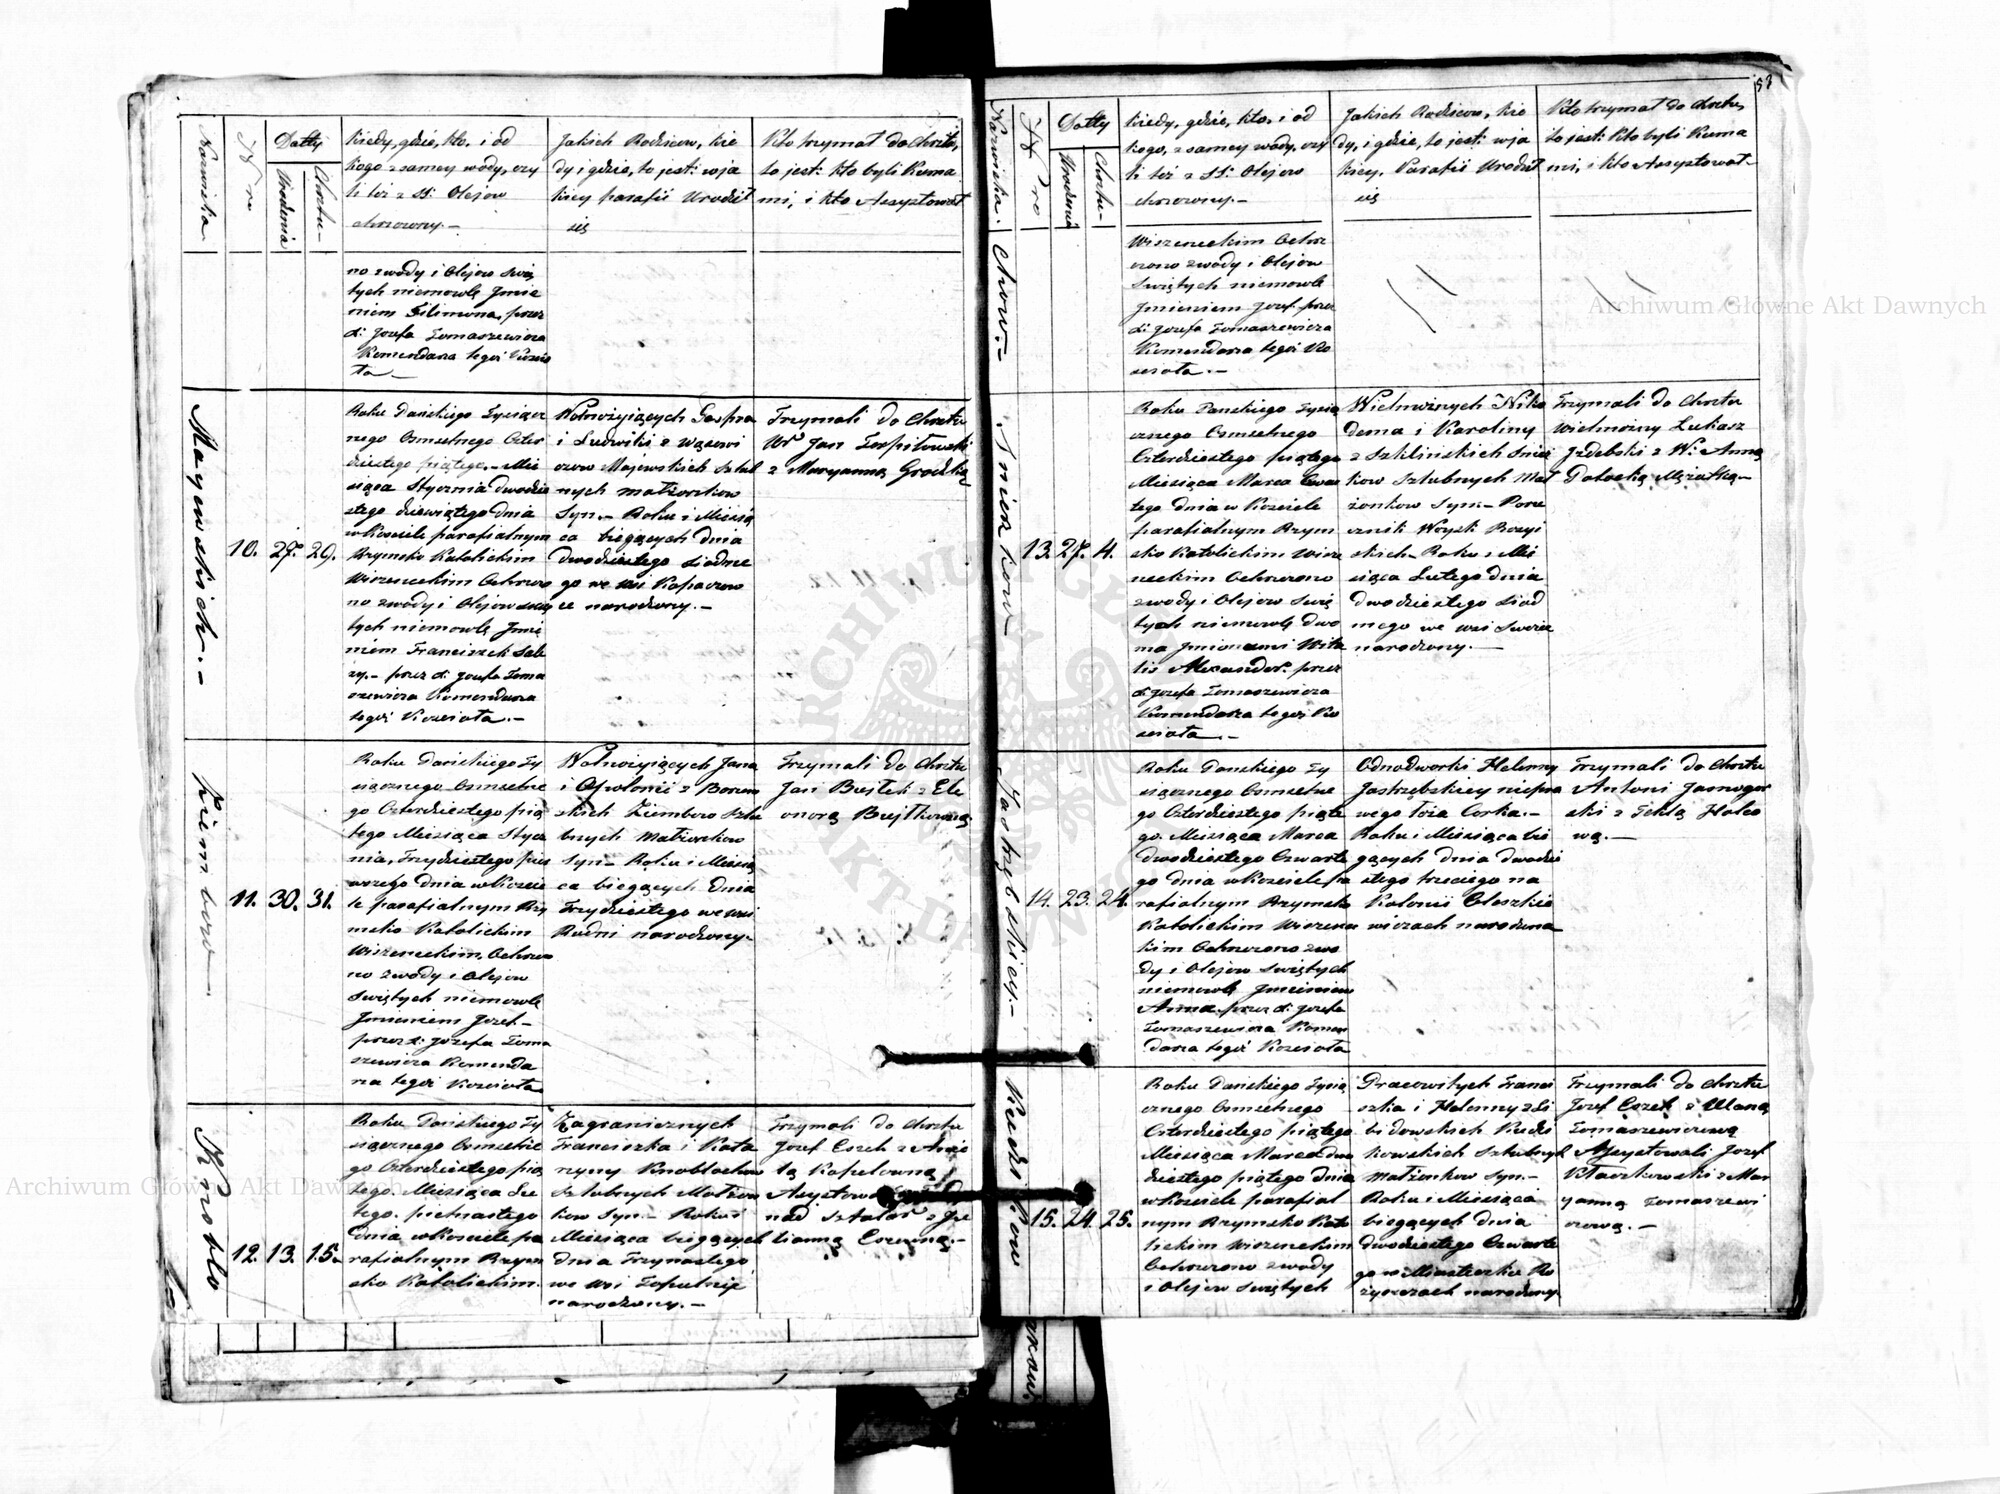 53
Nazwiska.
Nro
Datty
Urodzenia
Chrztu
Kiedy, gdzie, kto, i od
kogo z samey wody, czy
li też z SS: Olejow
chrzczony.—
Jakich Rodzicow, kie
dy i gdzie, to jest: w ja
kiey parafii Urodził
się
Kto trzymał do Chrztu,
to jest: kto byli Kuma
mi, i kto Assystował
no z wody i Olejow Swię
tych niemowle Jmie
niem Filimona, przez
X: Jozefa Tomaszewicza
Komendarza tegoż Koscio
ła.—
Mayewskich.—
10.
27.
29.
Roku Pańskiego Tysiącz
nego Osmsetnego Czter
dziestego piątego.— Mie
siąca Stycznia dwudzie
stego dziewiątego dnia
w Kosciele parafialnym
Rzymsko Katolickim
Wiszenieckim Ochrzczo
no z wody i Olejow Swię
tych niemowle Jmie
niem Franciszek Sale
zy.— przez X: Jozefa Toma
szewicza Komendarza
tegoż Kosciola.—
Wolnożyjących Gaspra
i Ludwiki z Wąsowi
czow Majewskich Szlub
nych małżonkow
Syn.— Roku i Miesią
ca biegących dnia
Dwudziestego siodme
go we wsi Kopaczow
ce narodzony.—
Trzymali do Chrztu
Ur: Jan
z Maryanną Grodzką
Ziembow.
11.
30.
31.
Roku Pańskiego Ty
siącznego Osmsetne
go Czterdziestego pią
tego Miesiąca Stycz
nia, Trzydziestego pier
wszego dnia w Koscie
le parafialnym Rzy
msko Katolickim
Wiszenieckim, Ochrzczo
no z wody i Olejow
Swiętych niemowle
Jmieniem Jozef.—
przez X: Jozefa Toma
szewicza Komenda
rza tegoż Kosciola
Wolnożyjących Jana
i Apolonii z Borow
skich Ziembow Szlu
bnych Małżonkow
Syn.— Roku i Miesią
ca biegących Dnia
Trzydziestego we wsi
Rudni narodzony.—
Trzymali do Chrztu
Jan z Ele
onorą
Knoblo
12.
13.
15.
Roku Pańskiego Ty
siącznego Osmsetne
go Czterdziestego pią
tego. Miesiąca Lu
tego. pietnastego
Dnia w Kosciele pa
rafialnym Rzym
sko Katolickim.
Zagranicznych
Franciszka i Kata
rzyny Knoblochow
Szlubnych Małżon
kow Syn.— Roku i
Miesiąca biegących
dnia Trzynastego
we wsi
narodzony.—
Trzymali do Chrztu
Jozef Czech z Anie
lą Kopelowną
z Ju
lianną
Nazwiska.
Nro
Datty
Urodzenia
Chrztu
Kiedy, gdzie, kto, i od
kogo, z samey wody, czy
li też z SS: Olejow
chrzczony.—
Jakich Rodzicow, kie
dy, i gdzie, to jest: w ja
kiey, Parafii Urodził
się
Kto trzymał do Chrztu,
to jest: kto byli Kuma
mi, i kto Assystował—
chow.—
Wiszenieckim Ochrz
czono z wody i Olejow
Swiętych niemowle
Jmieniem Jozef. przez
X: Jozefa Tomaszewicza
Komendarza tegoż Ko
sciola.—
13.
27.
4.
Roku Pańskiego Tysią
cznego Osmsetnego
Czterdziestego piątego
Miesiąca Marca Czwar
tego dnia w Kosciele
parafialnym Rzym
sko Katolickim Wisz
nieckim Ochrzczono
z wody i Olejow Swię
tych niemowle dwo
ma Jmionami Wita
lis Alexander. przez
X: Jozefa Tomaszewicza
Komendarza tegoż Ko
sciola.—
Wielmożnych Niko
dema i Karoliny
z Szklinskich
kow Szlubnych Mał
żonkow Syn.— Poru
cznik Woysk Rossyi
skich.— Roku i Mie
siąca Lutego dnia
Dwudziestego siod
mego we wsi
narodzony.—
Trzymali do Chrztu
Wielmożny Łukasz
Jzdebski z W: Anną
Potocką Mężatką.—
Jastrzębskiey.—
14.
23.
24.
Roku Pańskiego Ty
siącznego Osmsetne
go Czterdziestego piąte
go. Miesiąca Marca
Dwudziestego Czwarte
go dnia w Kosciele pa
rafialnym Rzymsko
Katolickim Wiszenie
kim Ochrzczono z wo
dy i Olejow Swiętych
niemowle Jmieniem
Anna. przez X: Jozefa
Tomaszewicza Komen
darza tegoż Kosciola
Odnodworki Helenny
Jastrzębskiey niepra
wego łoża Corka.—
Roku i Miesiąca bie
gących dnia dwudzie
stego trzeciego na
Kolonii
narodzona
Trzymali do Chrztu
Antoni Jarnogor
ski z Teklą
wą.—
15.
24.
25.
Roku Pańskiego Tysią
cznego Osmsetnego
Czterdziestego piątego
Miesiąca Marca dwu
dziestego piątego dnia
w Kosciele parafial
nym Rzymsko Kato
lickim Wiszenieckim
Ochrzczono z wody
i Olejow Swiętych
Pracowitych Franci
szka i Helenny z Li
bidowskich
Szlubnych
Małżonkow Syn.—
Roku i Miesiąca
biegących dnia
dwudziestego Czwarte
go w Miasteczku Ro
życzach narodzony.
Trzymali do Chrztu
Jozef Czech z Ulaną
Tomaszewiczową
Assystowali Jozef
z Mar
yanną Tomaszewi
czową.—
Archiwum Główne Akt Dawnych
Archiwum Główne Akt Dawnych